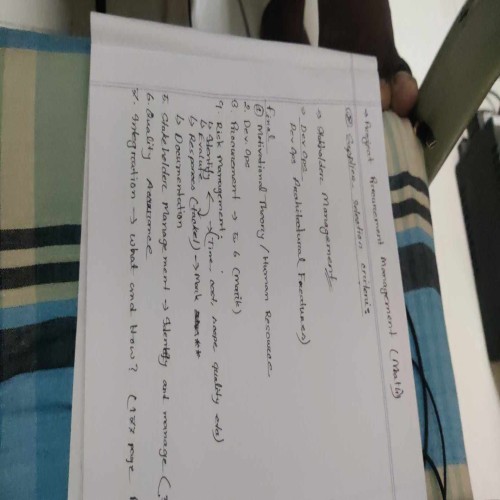 → Project Procurement Management (Malik)
Supplier selection criteria
→ Stakeholder Management
→ Dev Ops
Dev Ops Architectural Features)
Final
① Motivational Theory / Human Resource
2. Dev Ops
3. Procurement → 5, 6 (malik)
4. Risk management
↳ Identify → (Time, cost, scope, quality etc)
↳ Evaluate
↳ Responses (tackel) → Mark
↳ Documentation
5. Stakeholder Management → Identify and manage (
6. Quality Assurance
7. Integration → What and How? (188 page